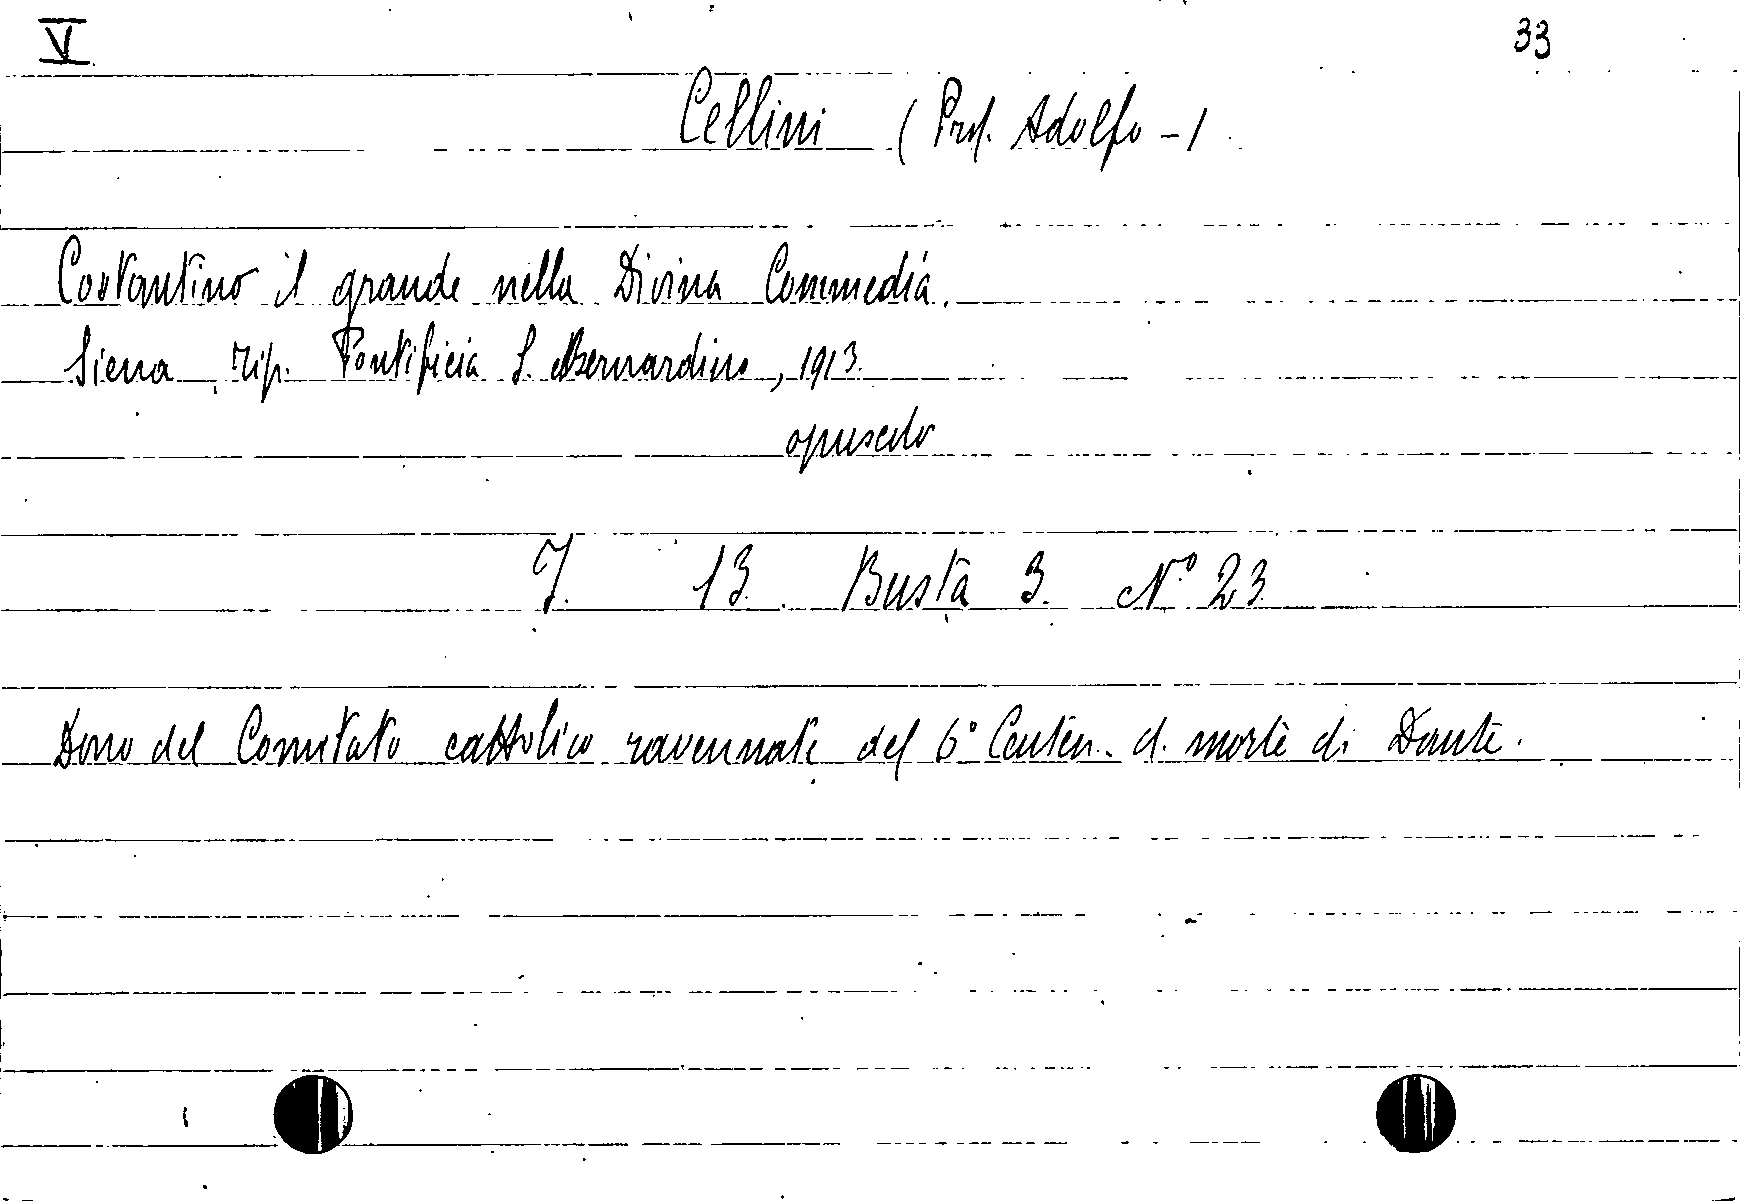 V
33
Cellini (Prof. Adolfo -)
Costantino il grande nella Divina Commedia.
Siena, Tip. Pontificia S. Bernardino, 1913.
opuscolo
13. Busta 3. N.° 23
Dono del Comitato cattolico ravennate del 6° Centen. d. morte di Dante.